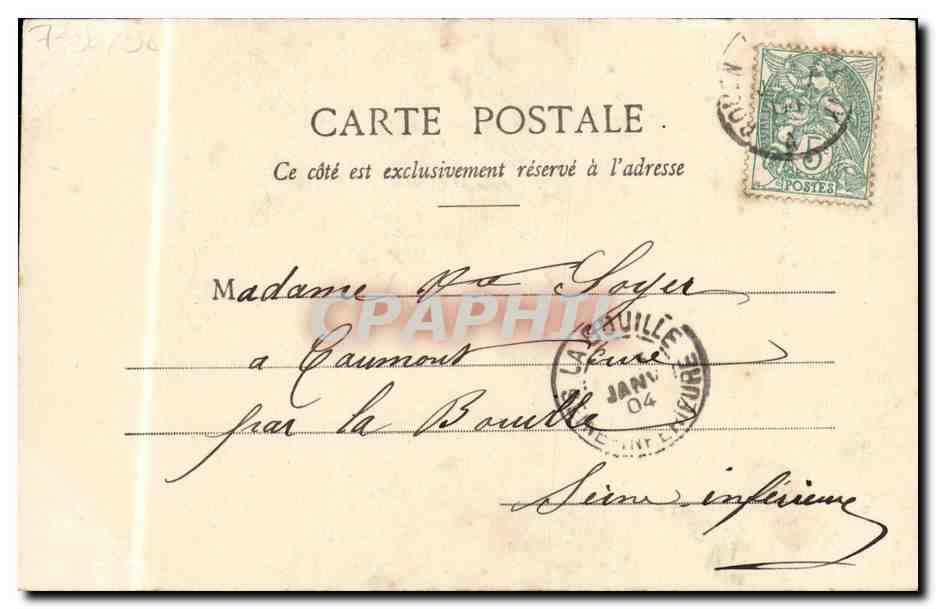 CARTE POSTALE.
Ce côté est exclusivement réservé à l'adresse
ROUEN
5
POSTES
Madame Vve Soyer
a Caumont Eure
par la Bouille
Seine-inférieure
LA BOUILLE
JANV
04
SEINE-INFERIEURE
CPAPHIL